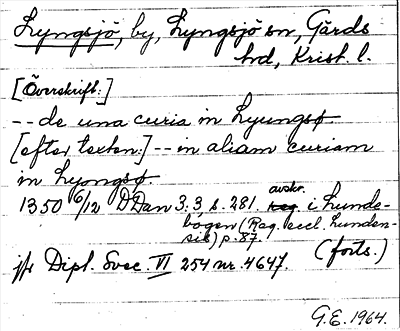 Lyngsjö, by, Lyngsjö sn, Gärds
hd, Krist. l.
[Överskrift:]
-- de una curia in Lyungsø
[efter texten:] -- in aliam curiam
in Lyongsø.
1350 6/12 DDan 3. 3, s. 281. avskr. i Lunde-
bogen (Reg. eccl. Lunden-
sis) p. 87.
(forts.)
jfr Dipl. Svec. VI 254 nr. 4647.
G.E. 1964.